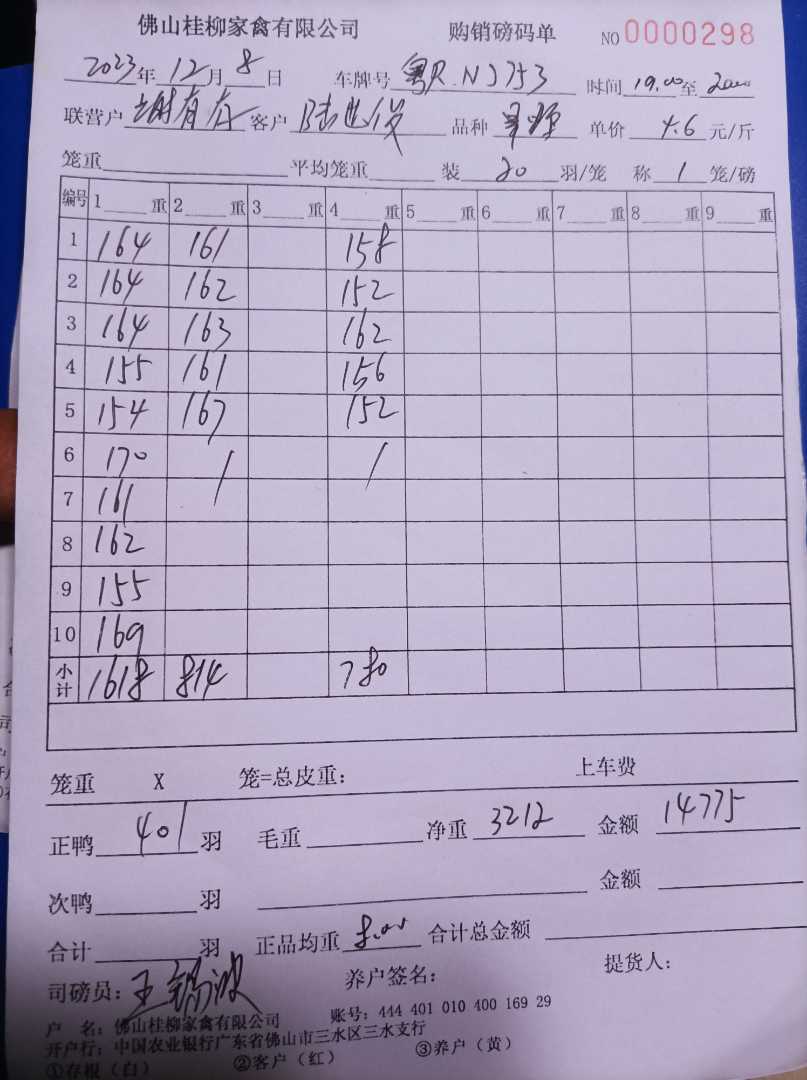 佛山桂柳家禽有限公司 购销磅码单 NO 0000298
2023年 12月 8日 车牌号 粤R.NJ753 时间 19.00至 2000
联营户 谢有存 客户 陆世俊 品种 单价 4.6 元/斤
笼重 平均笼重 装 20 羽/笼 称 1 笼/磅
编号 1 重 2 重 3 重 4 重 5 重 6 重 7 重 8 重 9 重
1 164 161 158
2 164 162 152
3 164 163 162
4 155 161 156
5 154 167 152
6 170 / /
7 161
8 162
9 155
10 169
小计 1618 814 780
笼重 X 笼=总皮重: 上车费
正鸭 401 羽 毛重 净重 3212 金额 14775
次鸭 羽 金额
合计 羽 正品均重 8.00 合计总金额
司磅员: 王锡波 养户签名: 提货人:
户 名: 佛山桂柳家禽有限公司 账号: 444 401 010 400 169 29
开户行: 中国农业银行广东省佛山市三水区三水支行
①存根(白) ②客户(红) ③养户(黄)